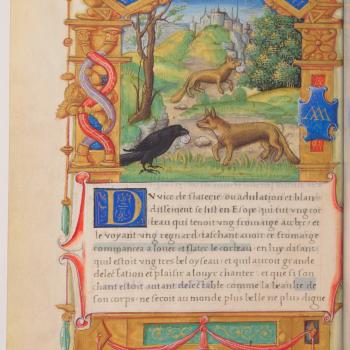 DV vice de flaterie ou adulation et blan
dissement se list en Esope qui fut vng cor
beau qui tenoit vng fromaige au bec: et
le voyant vng regnard taschant avoir ce fromaige
commancea a louer et flater le corbeau en luy disant
quil estoit vng tres bel oyseau: et quil auroit grant
delectation et plaisir a louyr chanter. et que si son
chant estoit autant delectable comme la beaulte de
son corps: ne seroit au monde plus belle ne plus digne